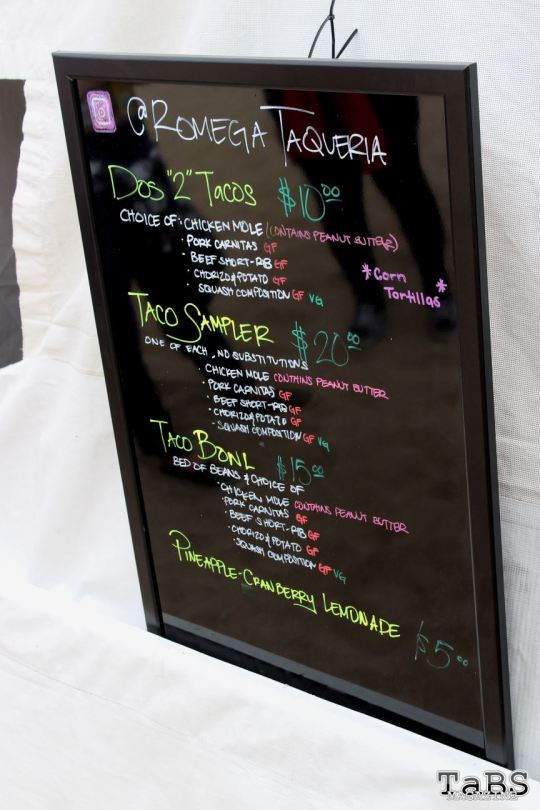 @ROMEGA TAQUERIA
DOS "2" TACOS $10.00
CHOICE OF: CHICKEN MOLE (CONTAINS PEANUT BUTTER)
· PORK CARNITAS GF
· BEEF SHORT-RIB GF
· CHORIZO & POTATO GF
· SQUASH COMPOSITION GF VG
*Corn Tortillas*
TACO SAMPLER $20.00
ONE OF EACH, NO SUBSTITUTIONS
· CHICKEN MOLE CONTAINS PEANUT BUTTER
· PORK CARNITAS GF
· BEEF SHORT-RIB GF
· CHORIZO & POTATO GF
· SQUASH COMPOSITION GF VG
TACO BOWL $15.00
BED OF BEANS & CHOICE OF
· CHICKEN MOLE CONTAINS PEANUT BUTTER
· PORK CARNITAS GF
· BEEF SHORT-RIB GF
· CHORIZO & POTATO GF
· SQUASH COMPOSITION GF VG
PINEAPPLE-CRANBERRY LEMONADE $5.00
TaBS